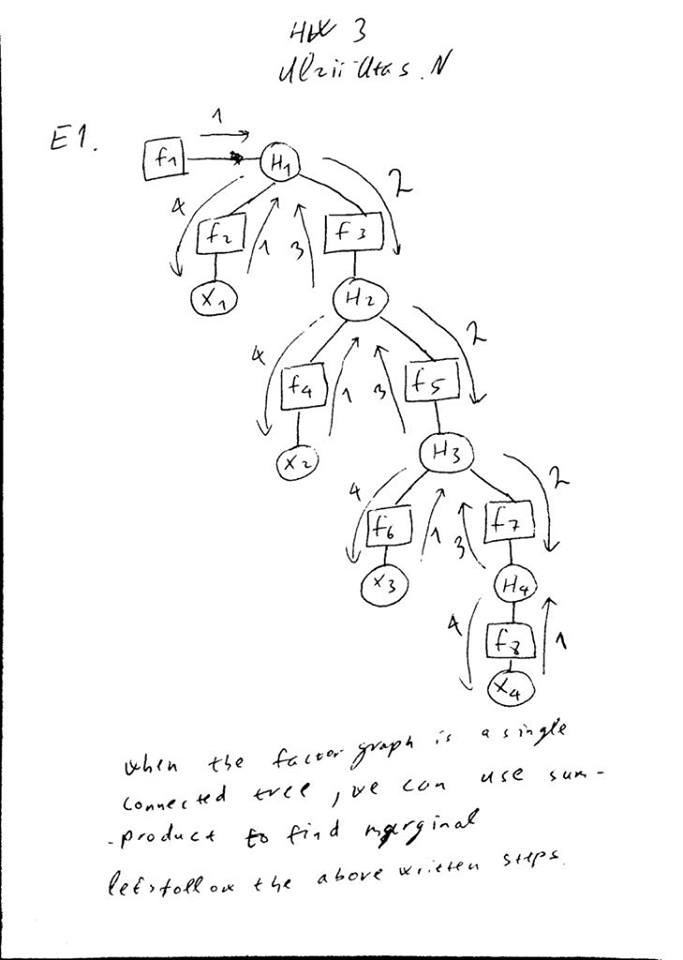 HW 3
Ulzii-Utas. N
E1.
1
f1
H1
2
4
f2
1
3
f3
X1
H2
4
2
f4
1
3
f5
X2
H3
4
2
f6
1
3
f7
X3
H4
4
f8
1
X4
when the factor graph is a single
connected tree, we can use sum-
-product to find marginal
let's follow the above written steps.